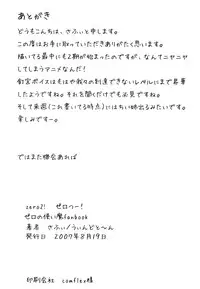 あとがき
どうもこんちは、さふぃと申します。
この度はお手に取っていただきありがたく思います。
描いてる最中にも2期が始まったのですが、なんてニヤニヤ
してしまうアニメなんだ！
釘宮ボイスはもはや我々の到達できないレベルにまで昇華
したようですね。それを聞くだけでも必見ですね。
そして来週(これ書いてる時点)にはちい姉出るみたいです。
楽しみですー。
ではまた機会あれば
zero2! ゼロっー!
ゼロの使い魔fanbook
著者 さふぃ/うぃんどと〜ん
発行日 2007年8月19日
印刷会社 comflex様